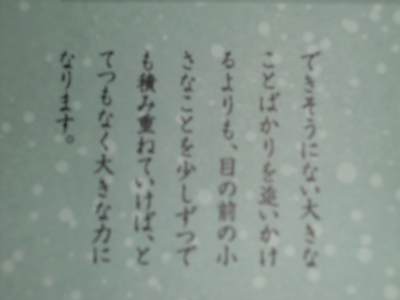 できそうにない大きな
ことばかりを追いかけ
るよりも、目の前の小
さなことを少しずつで
も積み重ねていけば、と
てつもなく大きな力に
なります。